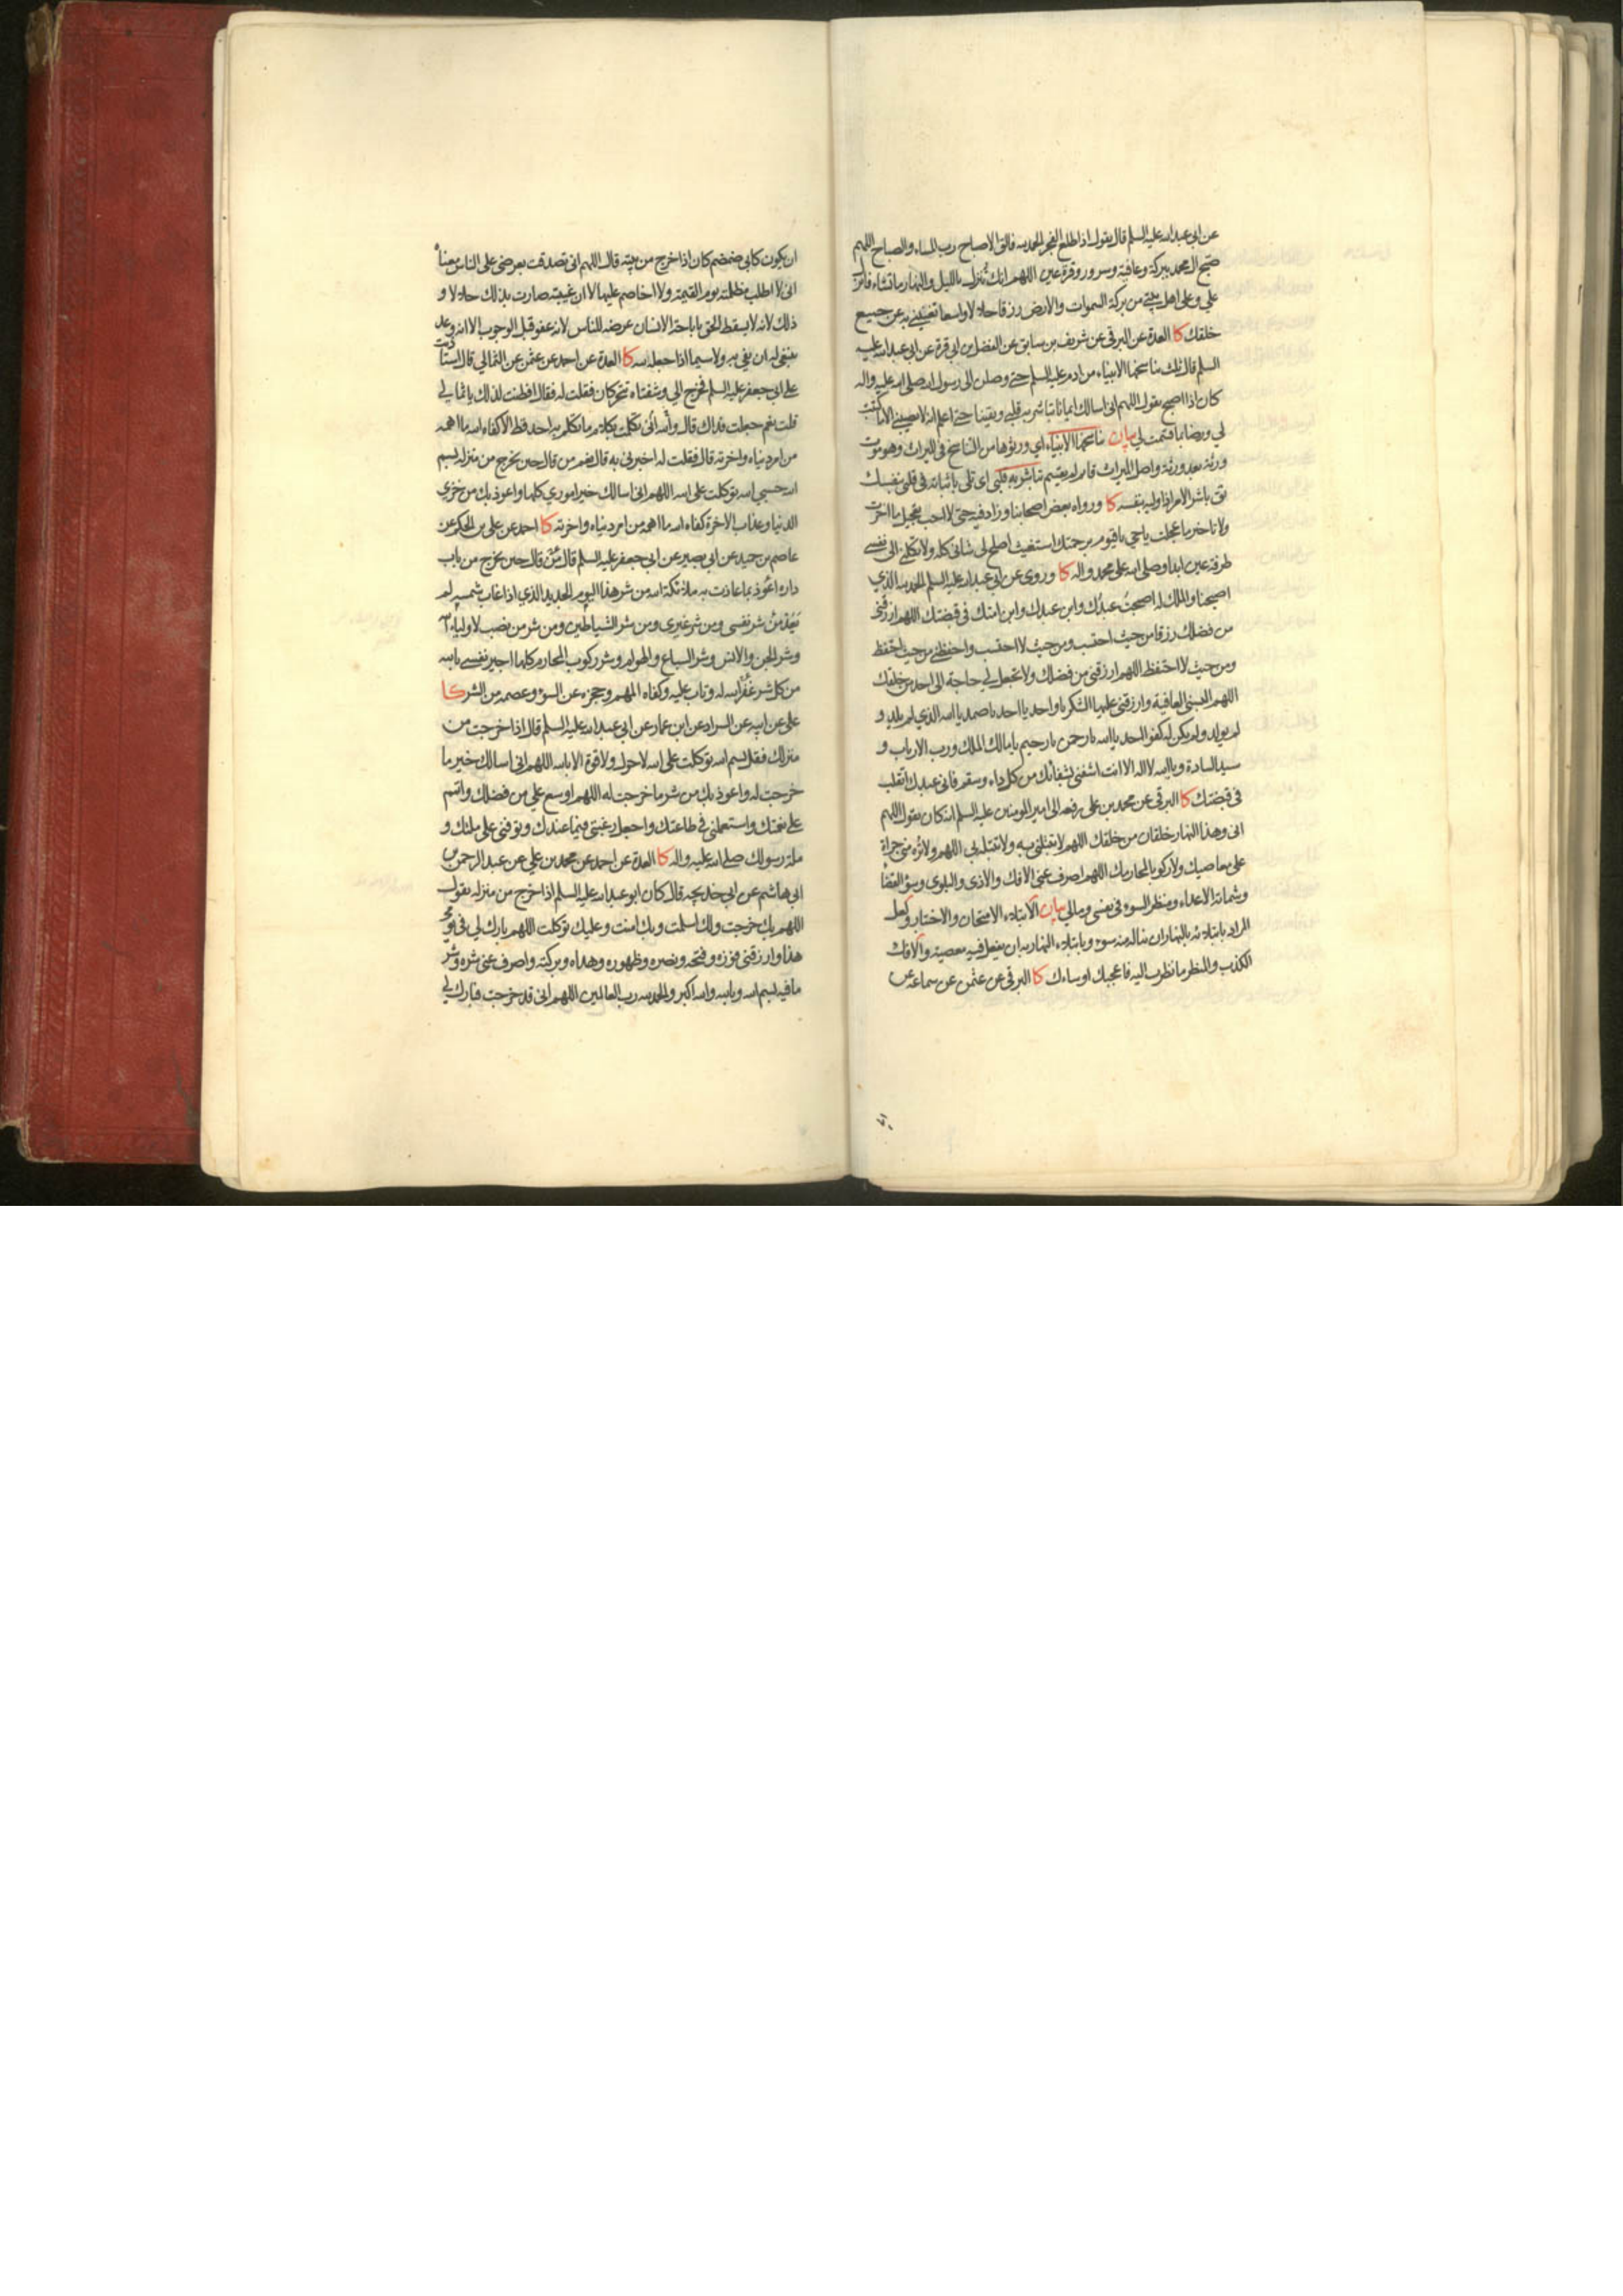 عن ابي عبد الله عليه السلم قال يقول اذا طلع الفجر الحمد لله فالق الاصباح رب المساء والصباح اللهم
صبح ال محمد ببركة وعافية وسرور وقرة عين اللهم انك تنزل بالليل والنهار ما تشاء فانزل
علي وعلى اهل بيتي من بركة السموات والارض رزقا حلالا واسعا تغنيني به عن جميع
خلقك كا العدة عن البرقي عن شريف بن سابق عن الفضل بن ابي قرة عن ابي عبد الله عليه
السلم قال ثلث تناسخها الانبياء من ادم عليه السلم حتى وصلن الى رسول الله صلى الله عليه واله
كان اذا اصبح يقول اللهم اني اسالك ايمانا تباشر به قلبي ويقينا حتى اعلم انه لا يصيبني الا ما كتبت
لي ورضا بما قسمت لي بيان تناسخها الانبياء اي ورثوها من التناسخ في الميراث وهو موت
ورثة بعد ورثة واصل الميراث قائم لم يقسم تباشر به قلبي اي تلي باثباته في قلبي نفسك
يق باشر الامر اذا وليه بنفسه كا ورواه بعض اصحابنا وزاد فيه حتى لا احب تعجيل ما اخرت
ولا تاخير ما عجلت يا حي يا قيوم برحمتك استغيث اصلح لي شاني كله ولا تكلني الى نفسي
طرفة عين ابدا وصلى الله على محمد واله كا وروى عن ابي عبد الله عليه السلم الحمد لله الذي
اصبحنا والملك له اصبحت عبدك وابن عبدك وابن امتك في قبضتك اللهم ارزقني
من فضلك رزقا من حيث احتسب ومن حيث لا احتسب واحفظني من حيث احتفظ
ومن حيث لا احتفظ اللهم ارزقني من فضلك ولا تجعل لي حاجة الى احد من خلقك
اللهم البسني العافية وارزقني عليها الشكر يا واحد يا احد يا صمد يا الله الذي لم يلد و
لم يولد ولم يكن له كفوا احد يا الله يا رحمن يا رحيم يا مالك الملك ورب الارباب و
سيد السادة ويا الله لا اله الا انت اشفني بشفائك من كل داء وسقم فاني عبدك اتقلب
في قبضتك كا البرقي عن محمد بن علي رفعه الى امير المومنين عليه السلم انه كان يقول اللهم
اني وهذا النهار خلقان من خلقك اللهم لا تبتلني به ولا تبتله بي اللهم ولا تره مني جراة
على معاصيك ولا ركوبا لمحارمك اللهم اصرف عني الافك والاذى والبلوى وسوء القضاء
وشماتة الاعداء ومنظر السوء في نفسي ومالي بيان الابتلاء الامتحان والاختبار ولعل
المراد بابتلائه بالنهار ان يناله منه سوء وبابتلاء النهار به ان يفعل فيه معصية والافك
الكذب والمنظر ما نظرت اليه فاعجبك او ساءك كا البرقي عن عثمن عن سماعة عن
ان يكون كابي ضمضم كان اذا خرج من بيته قال اللهم اني تصدقت بعرضي على الناس معناه
اني لا اطلب مظلمته يوم القيمة ولا اخاصم عليها لا ان غيبته صارت بذلك حلالا و
ذلك لانه لا يسقط الحق باباحة الانسان عرضه للناس لانه عفو قبل الوجوب الا انه وعد
ينبغي له ان يفي به ولا سيما اذا جعله لله كا العدة عن احمد عن عثمن عن الثمالي قال استاذنت
على ابي جعفر عليه السلم فخرج الي وشفتاه تتحركان فقلت له فقال افطنت لذلك يا ثمالي
قلت نعم جعلت فداك قال والله اني تكلمت بكلام ما تكلم به احد قط الا كفاه الله ما اهمه
من امر دنياه واخرته قال فقلت له اخبرني به قال نعم من قال حين يخرج من منزله بسم
الله حسبي الله توكلت على الله اللهم اني اسالك خير اموري كلها واعوذ بك من خزي
الدنيا وعذاب الاخرة كفاه الله ما اهمه من امر دنياه واخرته كا احمد عن علي بن الحكم عن
عاصم بن حميد عن ابي بصير عن ابي جعفر عليه السلم قال من قال حين يخرج من باب
داره اعوذ بما عاذت به ملائكة الله من شر هذا اليوم الجديد الذي اذا غابت شمسه لم
يعد من شر نفسي ومن شر غيري ومن شر الشياطين ومن شر من نصب لاولياء الله
وشر الجن والانس وشر السباع والهوام وشر ركوب المحارم كلها اجير نفسي بالله
من كل شر غفر الله له وتاب عليه وكفاه المهم وحجزه عن السوء وعصمه من الشر كا
علي عن ابيه عن السراد عن ابن عمار عن ابي عبد الله عليه السلم قال اذا خرجت من
منزلك فقل بسم الله توكلت على الله لا حول ولا قوة الا بالله اللهم اني اسالك خير ما
خرجت له واعوذ بك من شر ما خرجت له اللهم اوسع علي من فضلك واتمم
علي نعمتك واستعملني في طاعتك واجعل رغبتي فيما عندك وتوفني على ملتك و
ملة رسولك صلى الله عليه واله كا العدة عن احمد عن محمد بن علي عن عبد الرحمن بن
ابي هاشم عن ابي خديجة قال كان ابو عبد الله عليه السلم اذا خرج من منزله يقول
اللهم بك خرجت ولك اسلمت وبك امنت وعليك توكلت اللهم بارك لي في يومي
هذا وارزقني فوزه وفتحه ونصره وظهوره وهداه وبركته واصرف عني شره وشر
ما فيه بسم الله وبالله والله اكبر والحمد لله رب العالمين اللهم اني قد خرجت فبارك لي